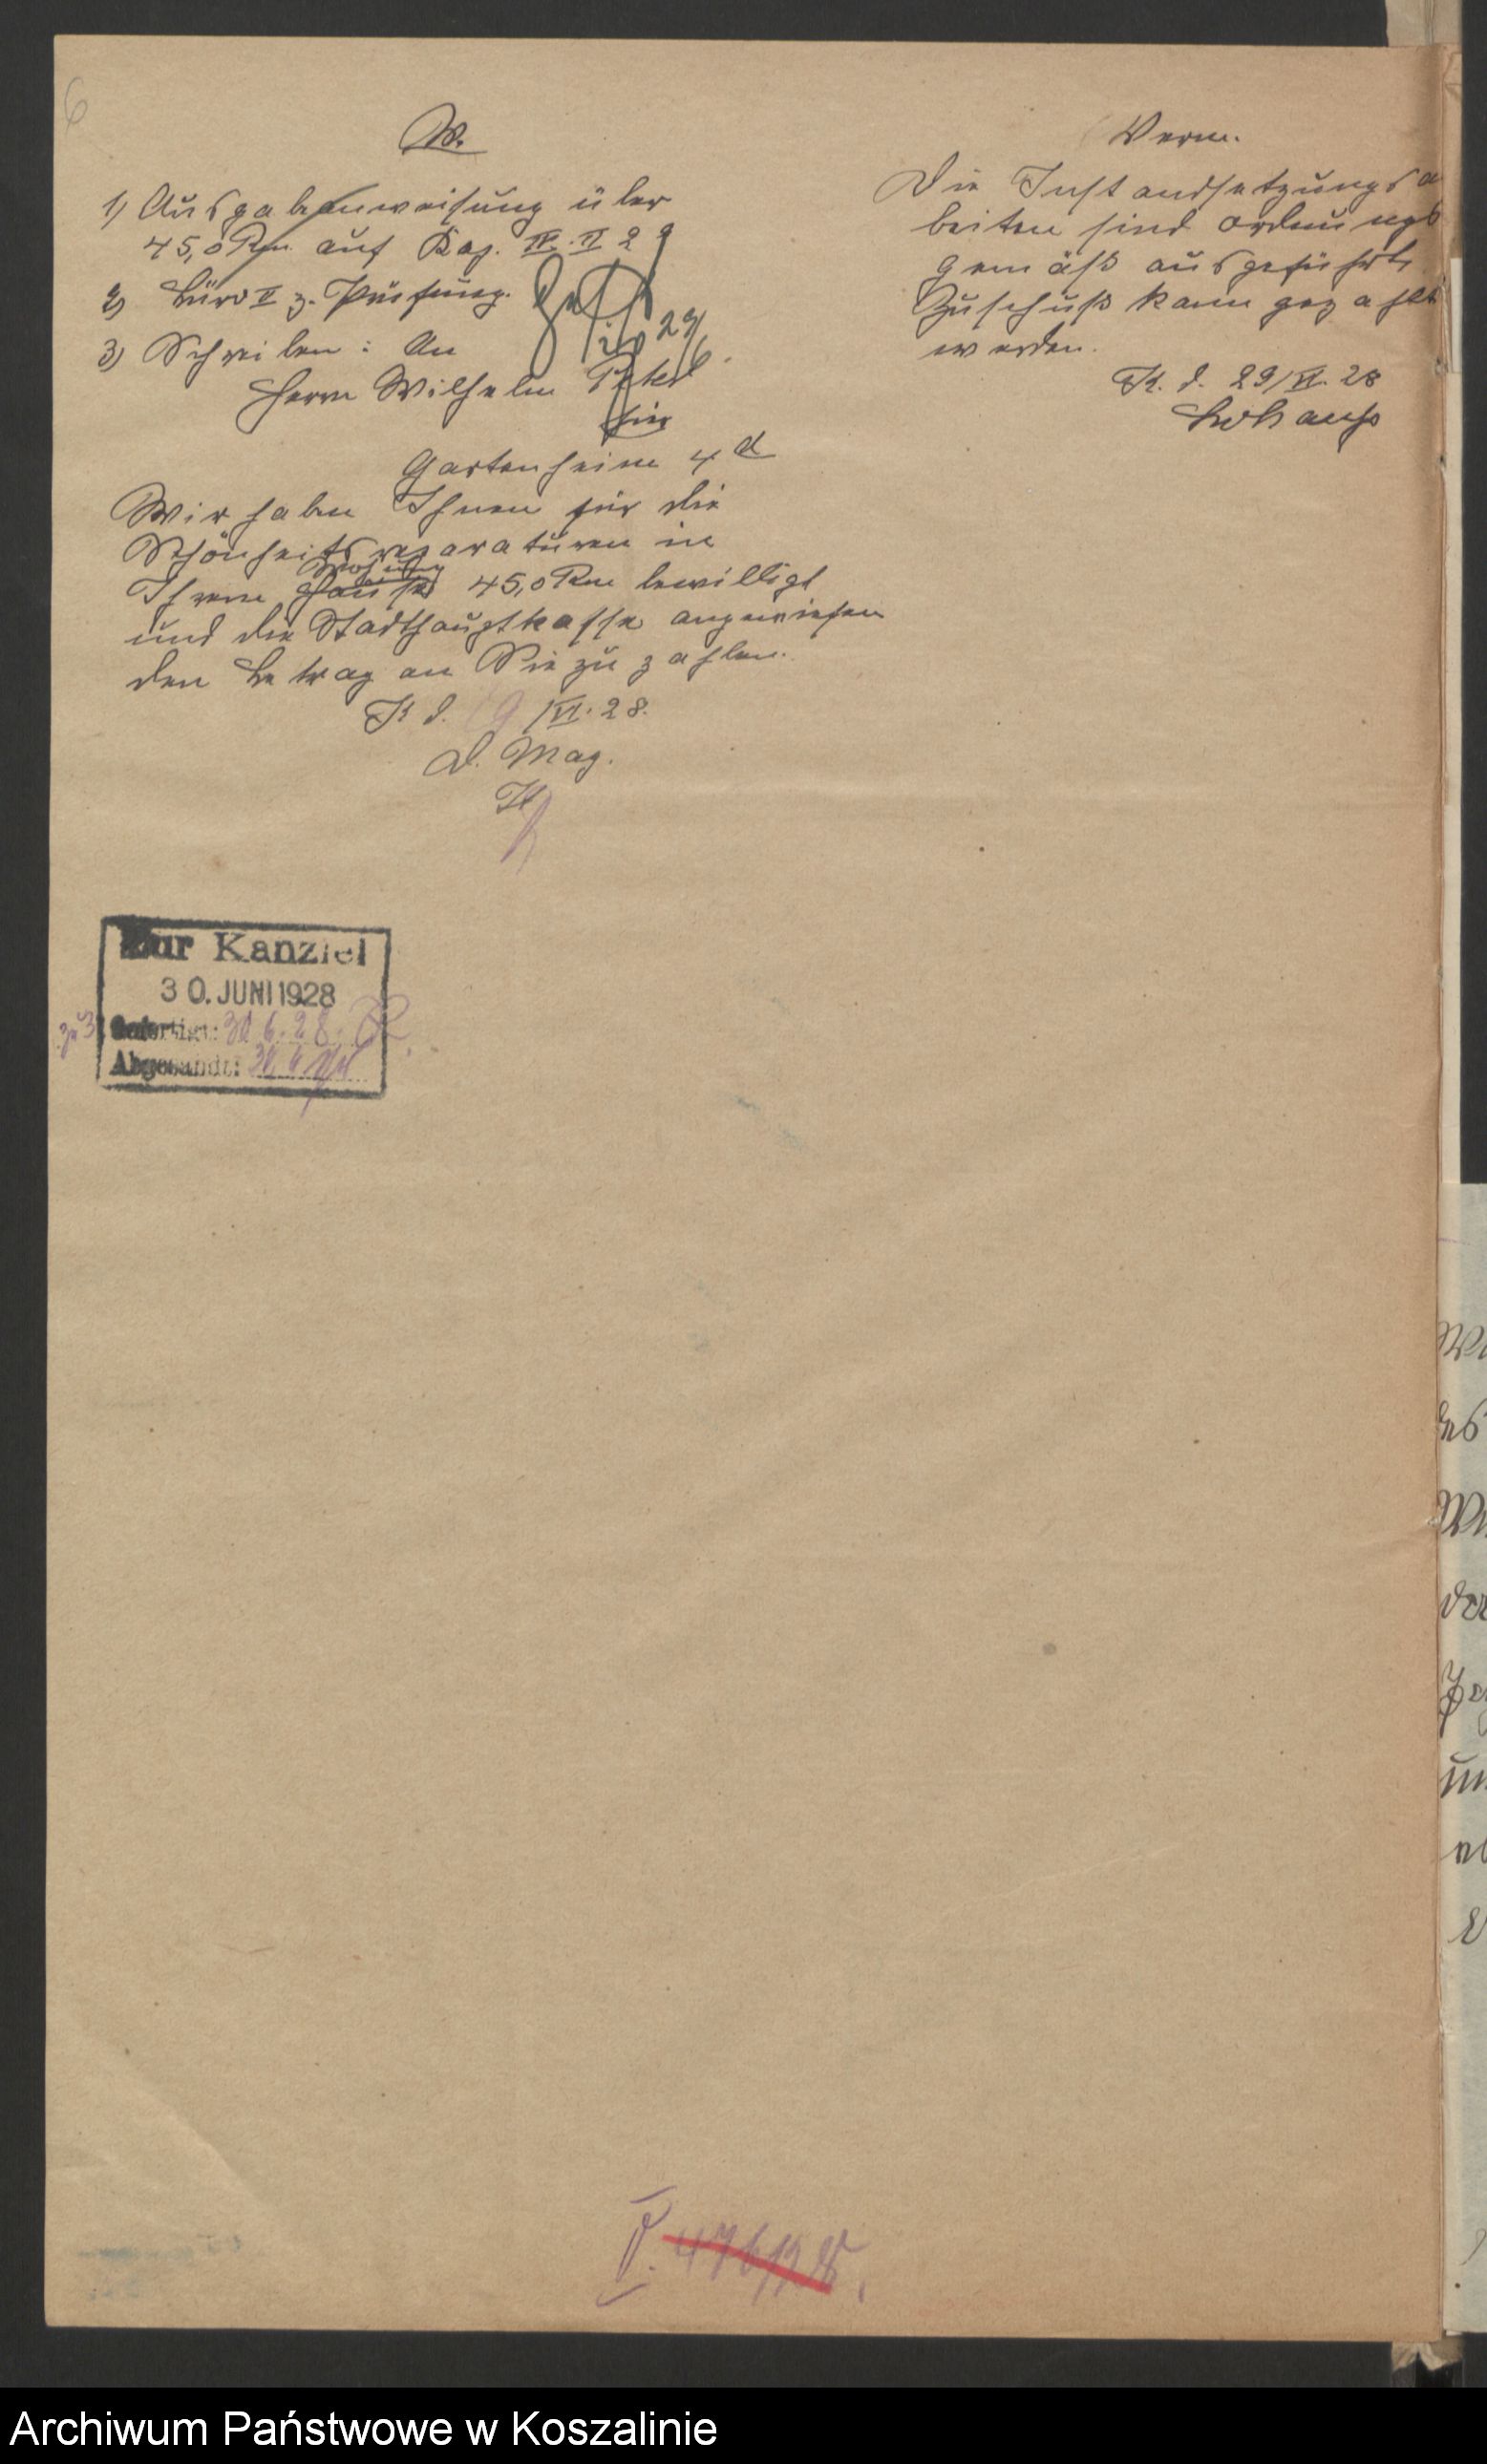 6
W.
1) Ausgabeanweisung über
45,0 Rm. auf Kap. IV. II 29
2) Büro II z. Prüfung.
29/6.
3) Schreiben: An
Herrn Wilhelm
hier
Gartenheim 4d
Wir haben Ihnen für die
Schönheitsreparaturen in
Wohnung
Ihrem Hause 45,0 Rm bewilligt
und die Stadthauptkasse angewiesen
den Betrag an Sie zu zahlen.
K d. 9/VI. 28.
D. Mag.
Verm.
Die Instandsetzungsa
beiten sind ordnungs
gemäß ausgeführt.
Zuschuß kann gezahlt
werden.
K. d. 29/VI. 28
Zur Kanzlei
30. JUNI 1928
zu 3 Gefertigt: 30.6.28.
Abgesandt: 30.6
V. 476/28.
Archiwum Państwowe w Koszalinie